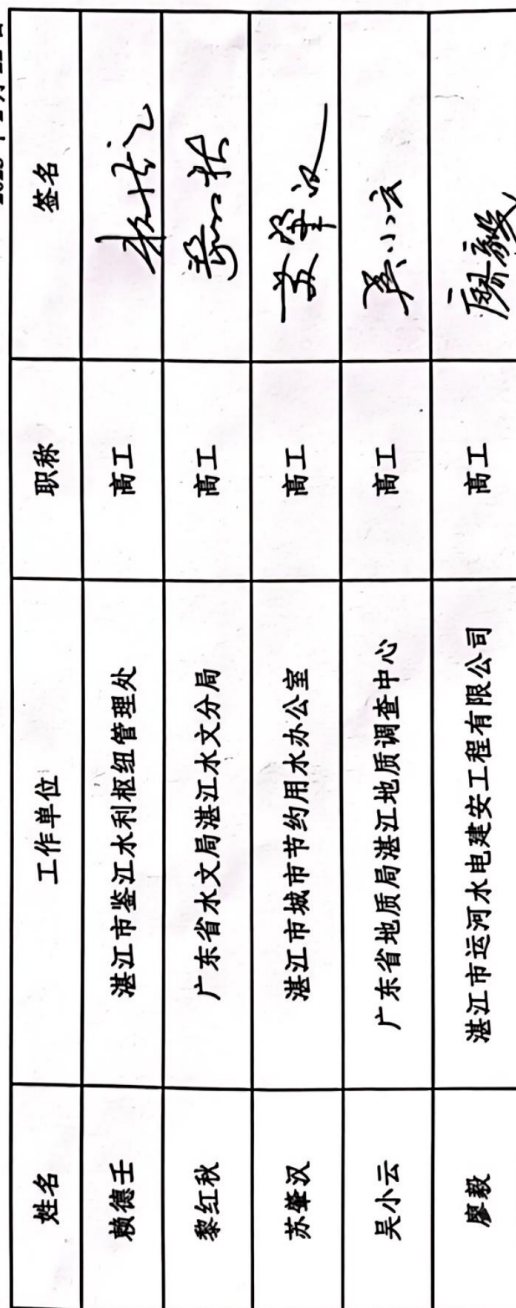 姓名 工作单位 职称 签名
赖德壬 湛江市鉴江水利枢纽管理处 高工
黎红秋 广东省水文局湛江水文分局 高工 黎红秋
苏肇汉 湛江市城市节约用水办公室 高工 苏肇汉
吴小云 广东省地质局湛江地质调查中心 高工 吴小云
廖毅 湛江市运河水电建安工程有限公司 高工 廖毅